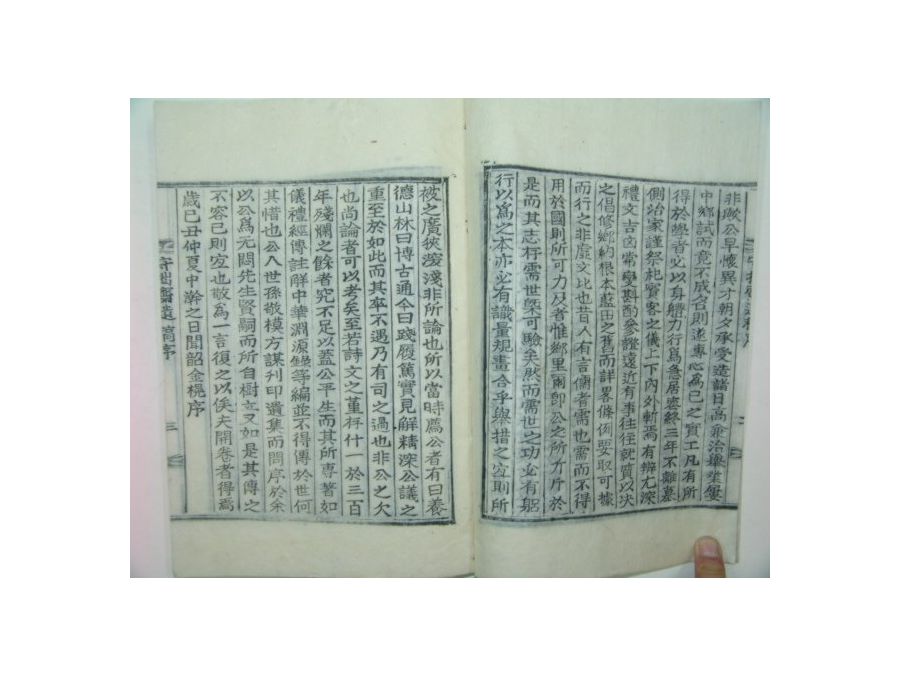 非歟公早懷異才朝夕承受造諸日高兼治擧業屢
中鄕試而竟不成名則遂專心爲己之實工凡有所
得於學者必以身體力行爲急居喪終三年不離墓
側治家謹祭祀賓客之儀上下內外斬焉有辨尤深
禮文吉凶常變斟酌參證遠近有事往徃就質以决
之倡修鄕約根本藍田之舊而詳畧條例要取可據
而行之非虛文比也昔人有言儒者需也需而不得
用於國則所可力及者惟鄕里爾卽公之所斤斤於
是而其志行需世槩可驗矣然而需世之功必有躬
行以爲之本亦必有識量規畫合乎擧措之宜則所
被之廣狹淺深非所論也所以當時薦公者有曰養
德山林曰博古通今曰踐履篤實見解精深公議之
重至於如此而其卒不遇乃有司之過也非公之欠
也尙論者可以考矣至若詩文之菫存什一於三百
年殘爛之餘者究不足以盖公平生而其所專著如
儀禮經傳註解中華淵源錄等編並不得傳於世何
其惜也公八世孫敬模方謀刊印遺集而問序於余
以公爲先賢嗣而所自樹立又如是其傳之
不容已則宜也敬爲一言復之以俟夫開卷者得焉
歲己丑仲夏中澣之日聞韶金榥序
守拙齋遺稿序
三